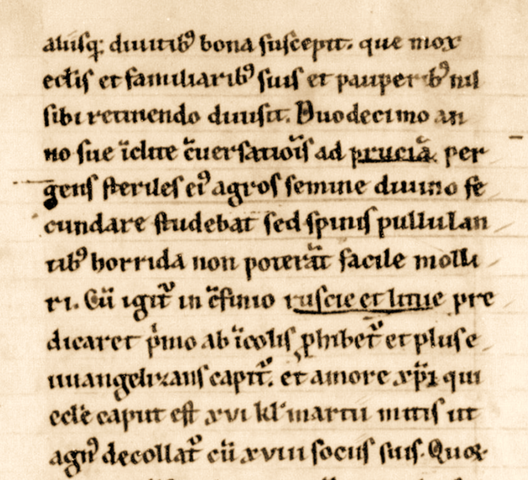 aliisq; diuitib᷒ bona suscepit. que mox
ecłis et familiarib᷒ suis et pauperib᷒ nil
sibi retinendo diuisit. Duodecimo an
no sue ĩclite c̃uersatiois̃ ad prucia᷒ per
gens steriles ei᷒ agros semine diuino fe
cundare studebat sed spinis pullulan
tib᷒ horrida non poterãt facile molli
ri. Cũ igit᷒ in c̃finio ruscie et lituę pre
dicaret p̃mo ab ĩcolis ꝓhibet᷒ et plus e
uuangelizans capit᷒. et amore xp̃i qui
eccłe caput est xvi kł martii mitis ut
agn᷒ decollat᷒ cũ xviii sociis suis. Quoꝝ